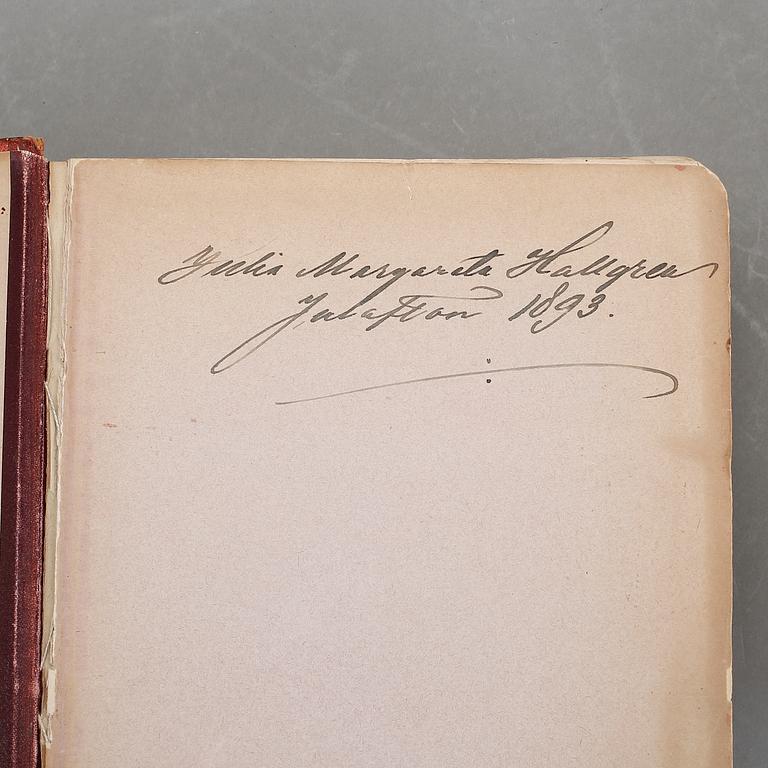 Julia Margareta Hallgren
Julafton 1893.